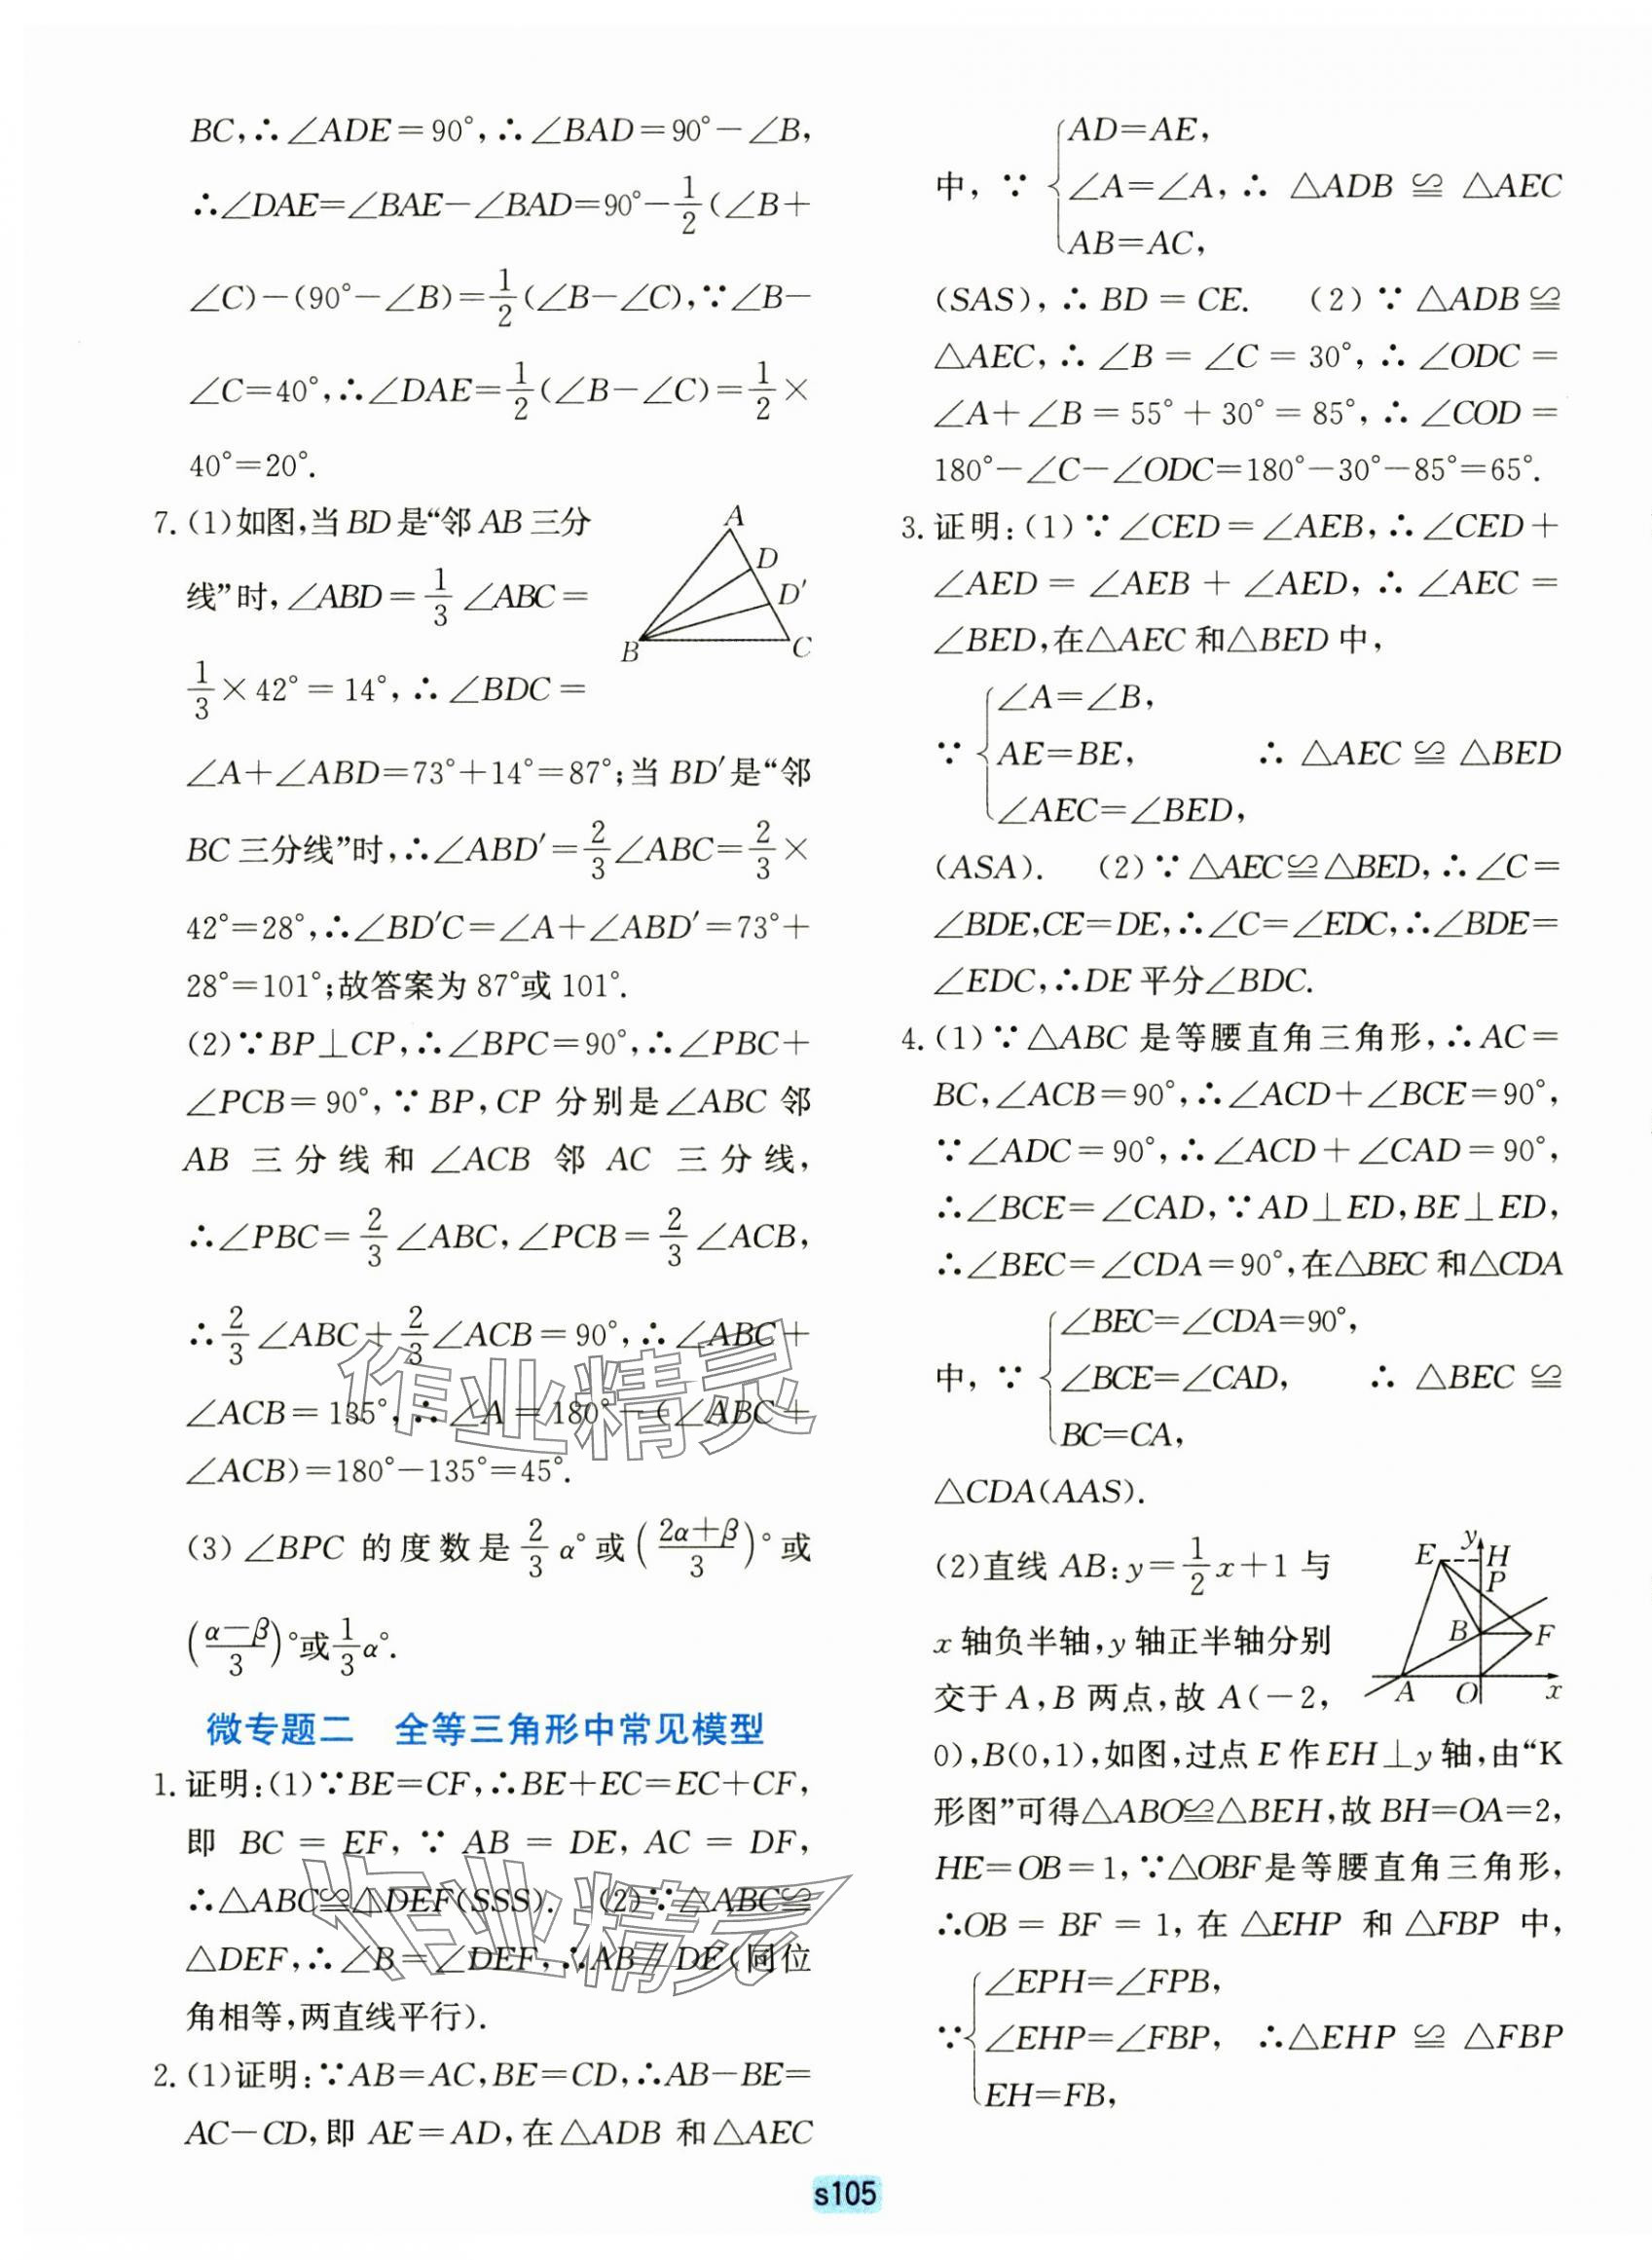 BC,∴∠ADE=90°,∴∠BAD=90°-∠B,
∴∠DAE=∠BAE-∠BAD=90°-1/2(∠B+
∠C)-(90°-∠B)=1/2(∠B-∠C),∵∠B-
∠C=40°,∴∠DAE=1/2(∠B-∠C)=1/2×
40°=20°.
7.(1)如图,当BD是“邻AB三分
线”时,∠ABD=1/3∠ABC=
1/3×42°=14°,∴∠BDC=
∠A+∠ABD=73°+14°=87°;当BD′是“邻
BC三分线”时,∴∠ABD′=2/3∠ABC=2/3×
42°=28°,∴∠BD′C=∠A+∠ABD′=73°+
28°=101°;故答案为87°或101°.
A
D
D′
B
C
(2)∵BP⊥CP,∴∠BPC=90°,∴∠PBC+
∠PCB=90°,∵BP,CP分别是∠ABC邻
AB三分线和∠ACB邻AC三分线,
∴∠PBC=2/3∠ABC,∠PCB=2/3∠ACB,
∴2/3∠ABC+2/3∠ACB=90°,∴∠ABC+
∠ACB=135°,∴∠A=180°-(∠ABC+
∠ACB)=180°-135°=45°.
(3)∠BPC的度数是2/3α°或((2α+β)/3)°或
((α-β)/3)°或1/3α°.
微专题二 全等三角形中常见模型
1.证明:(1)∵BE=CF,∴BE+EC=EC+CF,
即BC=EF,∵AB=DE,AC=DF,
∴△ABC≌△DEF(SSS). (2)∵△ABC≌
△DEF,∴∠B=∠DEF,∴AB∥DE(同位
角相等,两直线平行).
2.(1)证明:∵AB=AC,BE=CD,∴AB-BE=
AC-CD,即AE=AD,在△ADB和△AEC
AD=AE,
中,∵ ∠A=∠A,∴△ADB≌△AEC
AB=AC,
(SAS),∴BD=CE. (2)∵△ADB≌
△AEC,∴∠B=∠C=30°,∴∠ODC=
∠A+∠B=55°+30°=85°,∴∠COD=
180°-∠C-∠ODC=180°-30°-85°=65°.
3.证明:(1)∵∠CED=∠AEB,∴∠CED+
∠AED=∠AEB+∠AED,∴∠AEC=
∠BED,在△AEC和△BED中,
∠A=∠B,
∵ AE=BE, ∴△AEC≌△BED
∠AEC=∠BED,
(ASA). (2)∵△AEC≌△BED,∴∠C=
∠BDE,CE=DE,∴∠C=∠EDC,∴∠BDE=
∠EDC,∴DE平分∠BDC.
4.(1)∵△ABC是等腰直角三角形,∴AC=
BC,∠ACB=90°,∴∠ACD+∠BCE=90°,
∵∠ADC=90°,∴∠ACD+∠CAD=90°,
∴∠BCE=∠CAD,∵AD⊥ED,BE⊥ED,
∴∠BEC=∠CDA=90°,在△BEC和△CDA
∠BEC=∠CDA=90°,
中,∵ ∠BCE=∠CAD, ∴△BEC≌
BC=CA,
△CDA(AAS).
(2)直线AB:y=1/2x+1与
x轴负半轴,y轴正半轴分别
交于A,B两点,故A(-2,
y
E
H
P
B
F
A
O
x
0),B(0,1),如图,过点E作EH⊥y轴,由“K
形图”可得△ABO≌△BEH,故BH=OA=2,
HE=OB=1,∵△OBF是等腰直角三角形,
∴OB=BF=1,在△EHP和△FBP中,
∠EPH=∠FPB,
∵ ∠EHP=∠FBP, ∴△EHP≌△FBP
EH=FB,
作业精灵
作业精灵
s105